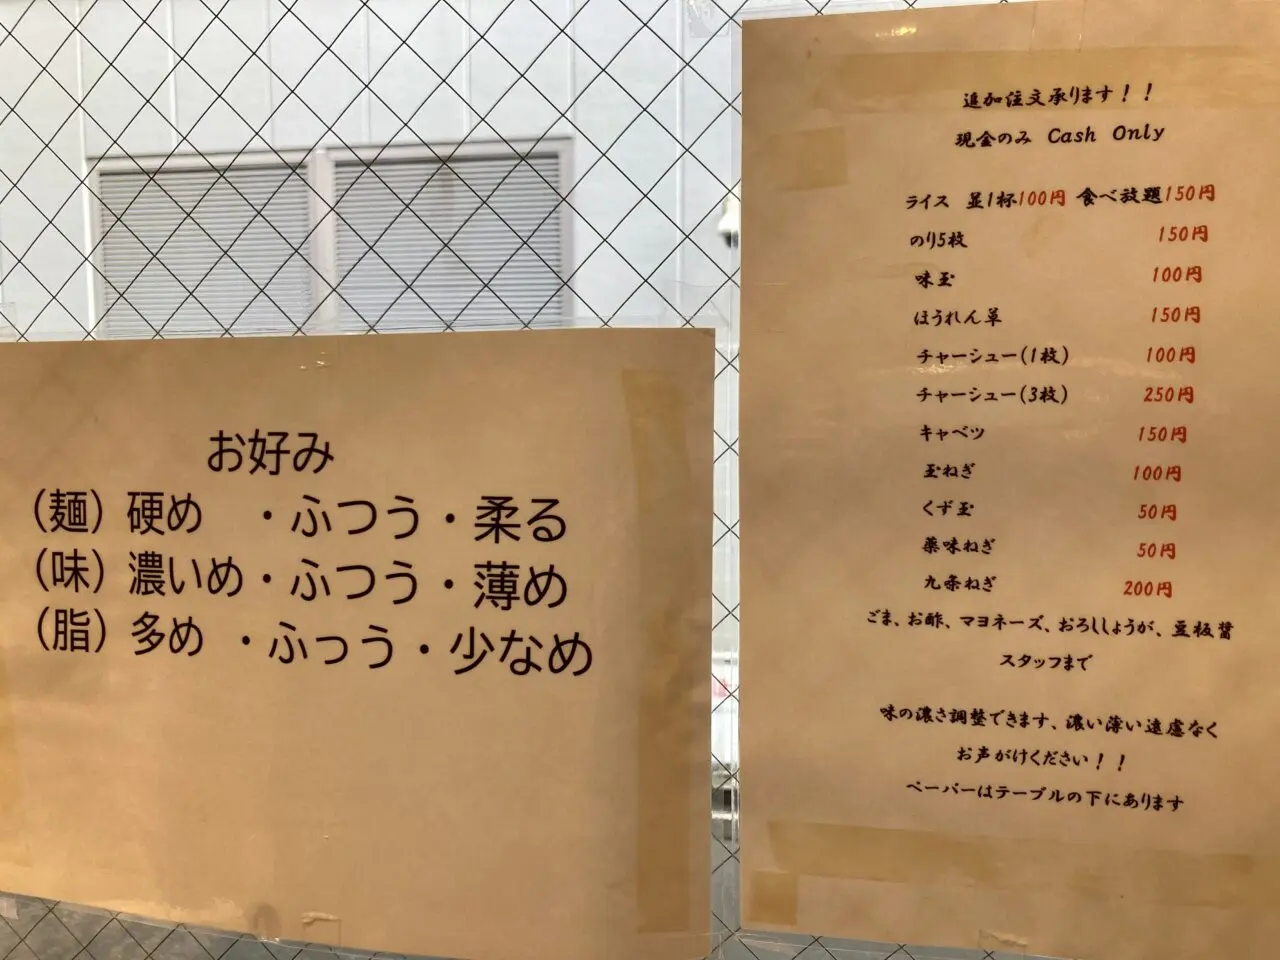 お好み
（麺）硬め ・ふつう・柔る
（味）濃いめ・ふつう・薄め
（脂）多め ・ふっう・少なめ
追加注文承ります！！
現金のみ Cash Only
ライス 並1杯100円 食べ放題150円
のり5枚 150円
味玉 100円
ほうれん草 150円
チャーシュー(1枚) 100円
チャーシュー(3枚) 250円
キャベツ 150円
玉ねぎ 100円
くず玉 50円
薬味ねぎ 50円
九条ねぎ 200円
ごま、お酢、マヨネーズ、おろししょうが、豆板醤
スタッフまで
味の濃さ調整できます、濃い薄い遠慮なく
お声がけください！！
ペーパーはテーブルの下にあります